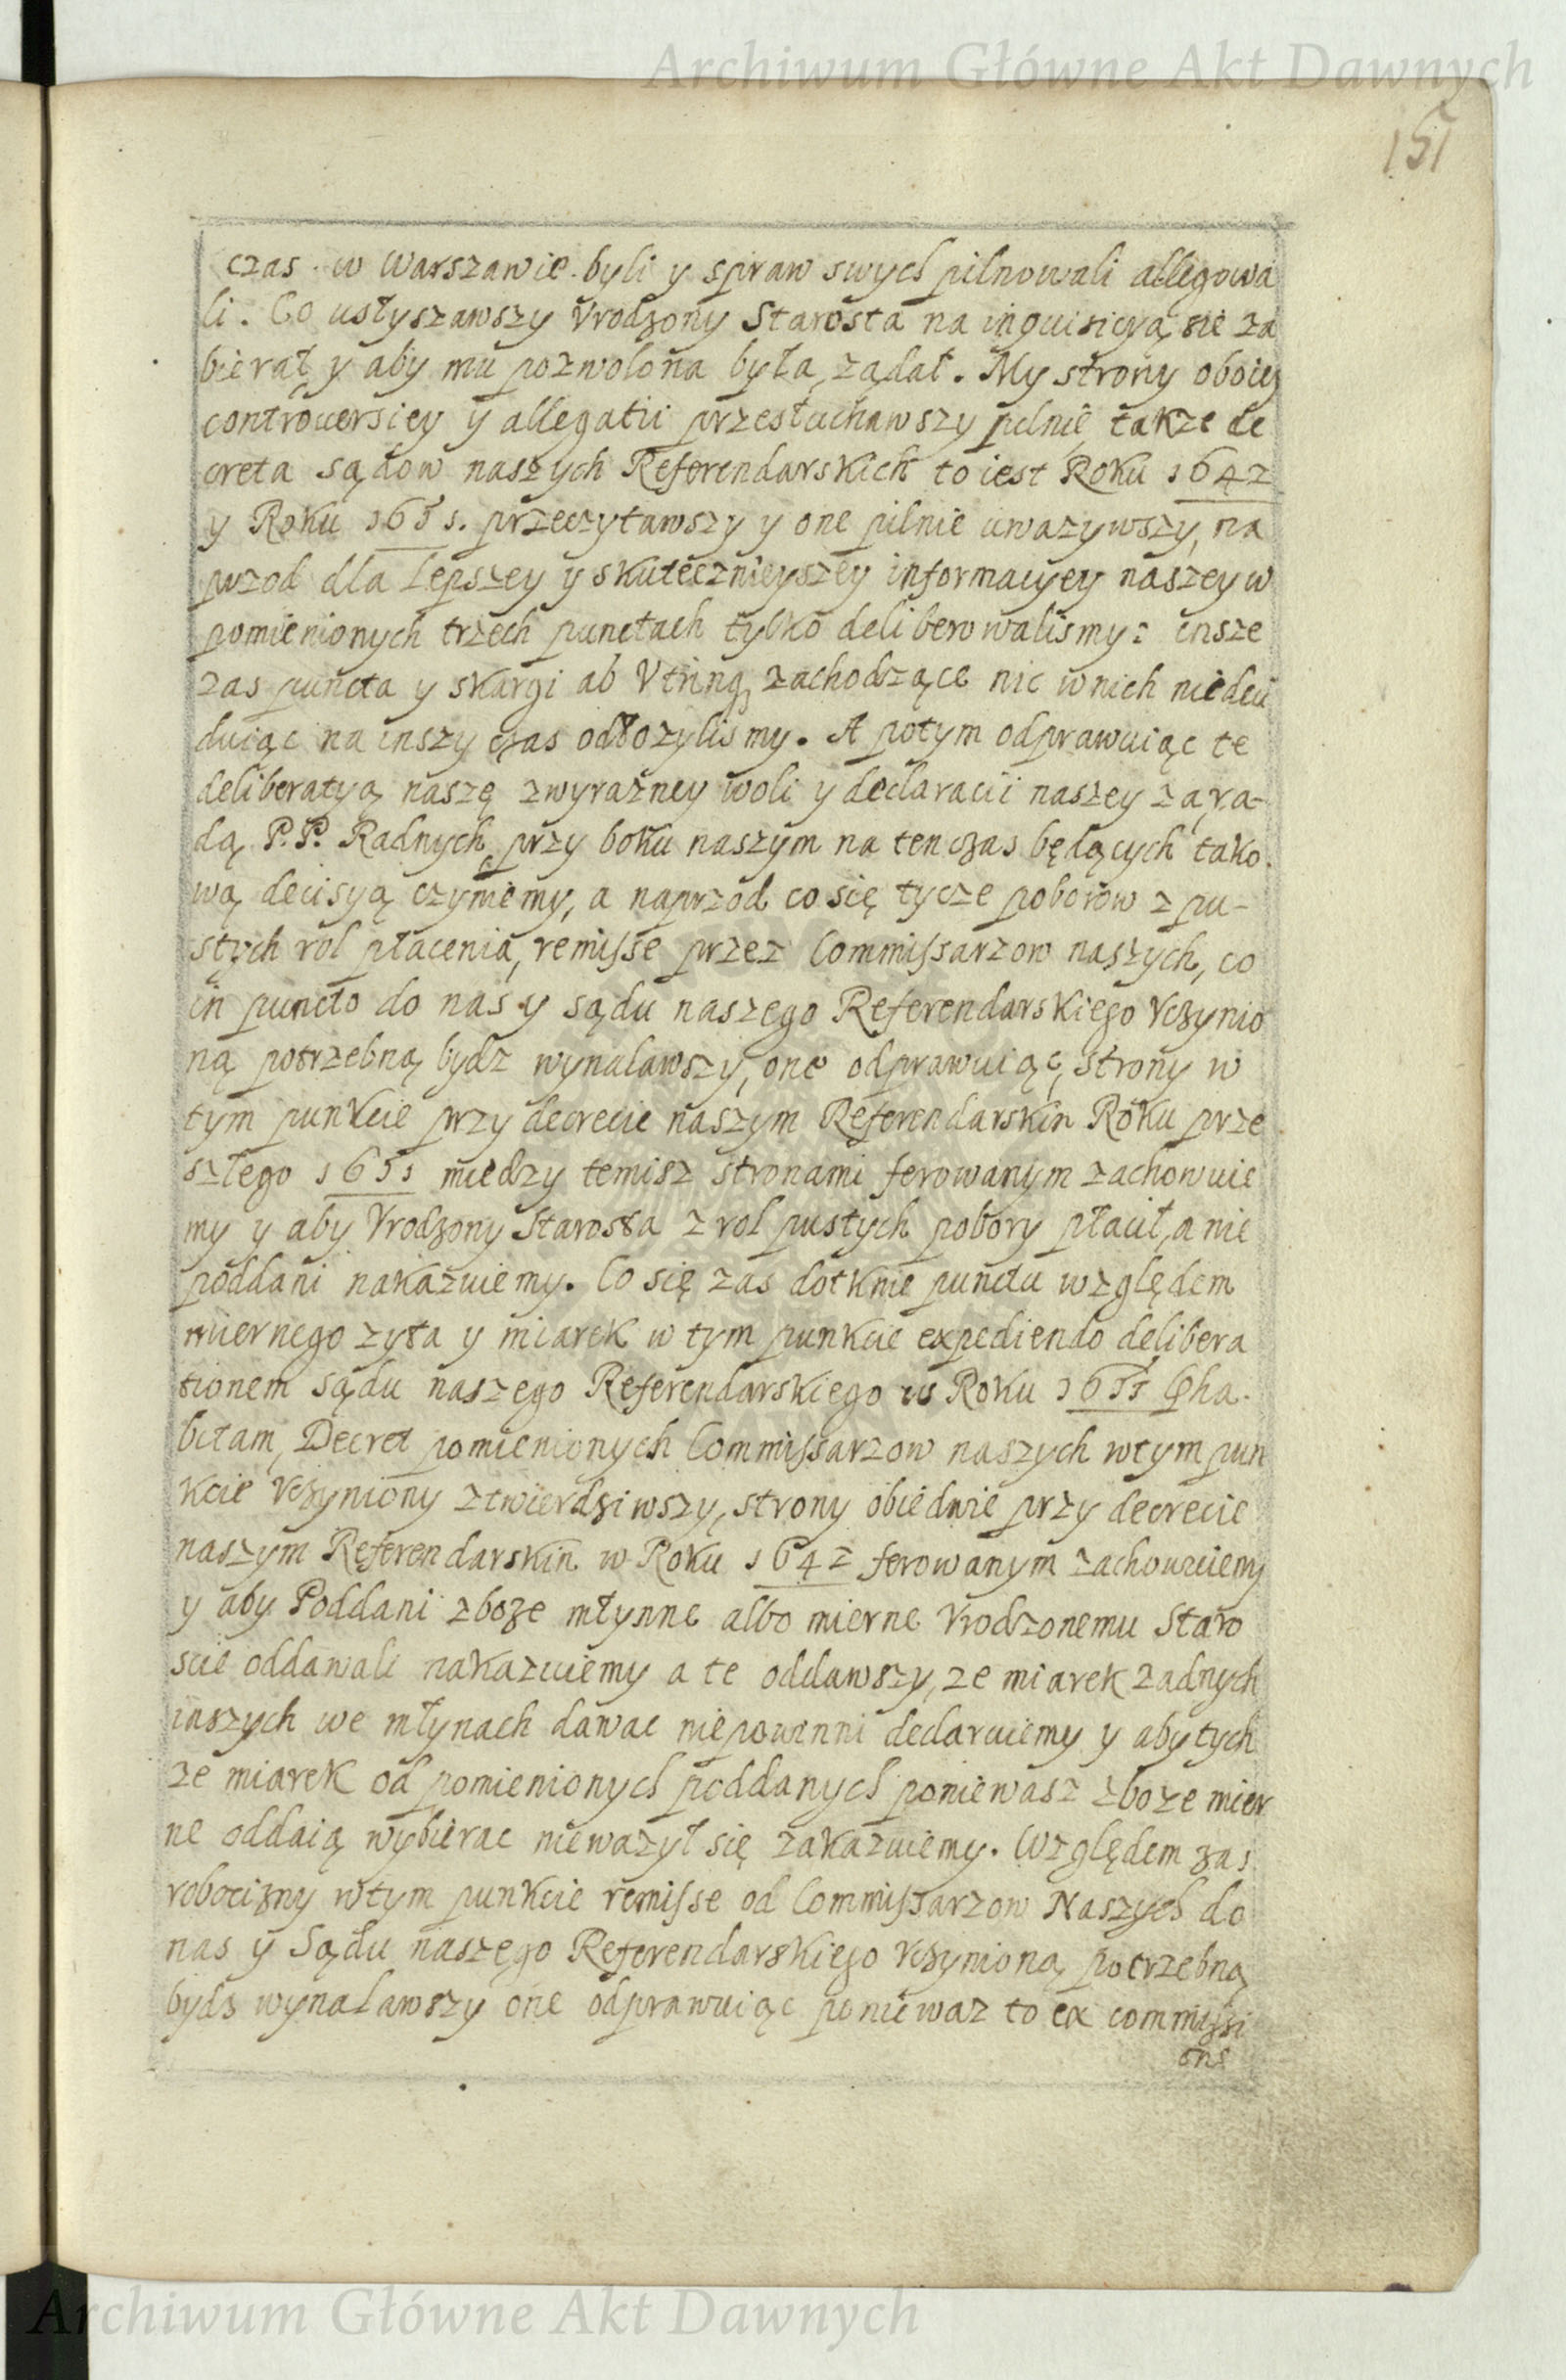 Archiwum Główne Akt Dawnych
151
czas w Warszawie byli y spraw swych pilnowali allegowa
li. Co usłyszawszy Vrodzony Starosta na inquisicyą sie za
bierał y aby mu pozwolona była, ządał. My strony oboiey
controuersiey y allegatii przesłuchawszy pilnie, takze de
creta sądow naszych Referendarskich to iest Roku 1642
y Roku 1651. przeczytawszy y one pilnie uwazywszy, na
przod dla lepszey y skutecznieyszey informacyey naszey w
pomienionych trzech punctach tylko deliberowalismy: insze
zas puncta y skargi ab Vtrinq zachodzące nic wnich niedeci
duiąc na inszy czas odłozylismy. A potym odprawuiąc te
deliberatyą naszę zwyrazney woli y declaracii naszey za ra-
dą P.P. Radnych przy boku naszym na ten czas będących tako
wą decisyą czyniemy, a naprzod co się tycze poborow z pu-
stych rol płacenia, remisse przez Commissarzow naszych, co
in puncto do nas y sądu naszego Referendarskiego Vczynio
ną potrzebną bydz wynalawszy, one odprawuiąc, strony w
tym punkcie przy decrecie naszym Referendarskin Roku prze
szłego 1651 miedzy temisz stronami ferowanym zachowuie
my y aby Vrodzony Starosta z rol pustych pobory płacił, a nie
poddani nakazuiemy. Co się zas dotknie punctu względem
miernego zyta y miarek w tym punkcie expediendo delibera
tionem sądu naszego Referendarskiego w Roku 1651 ha
bitam, Decret pomienionych Commissarzow naszych wtym pun
kcie Vczyniony ztwierdziwszy, strony obiedwie przy decrecie
naszym Referendarskin w Roku 1642 ferowanym zachowuiemy
y aby Poddani zboze młynne albo mierne Vrodzonemu Staro
scie oddawali nakazuiemy a te oddawszy, ze miarek zadnych
inszych we młynach dawac niepowinni declaruiemy y aby tych
ze miarek od pomienionych poddanych poniewasz zboze mier
ne oddaią wybierac niewazył się zakazuiemy. Względem zas
robocizny wtym punkcie remisse od Commissarzow Naszych do
nas y Sądu naszego Referendarskiego Vczynioną potrzebną
bydz wynalawszy one odprawuiąc poniewaz to ex commissi
one
Archiwum Główne Akt Dawnych